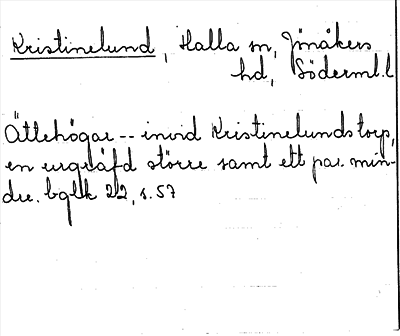 Kristinelund, Halla sn, Jönåkers
hd, Söderml. l
Ättehögar -- invid Kristinelunds torp,
en urgräfd större samt ett par min-
dre. bglk 22, s. 57